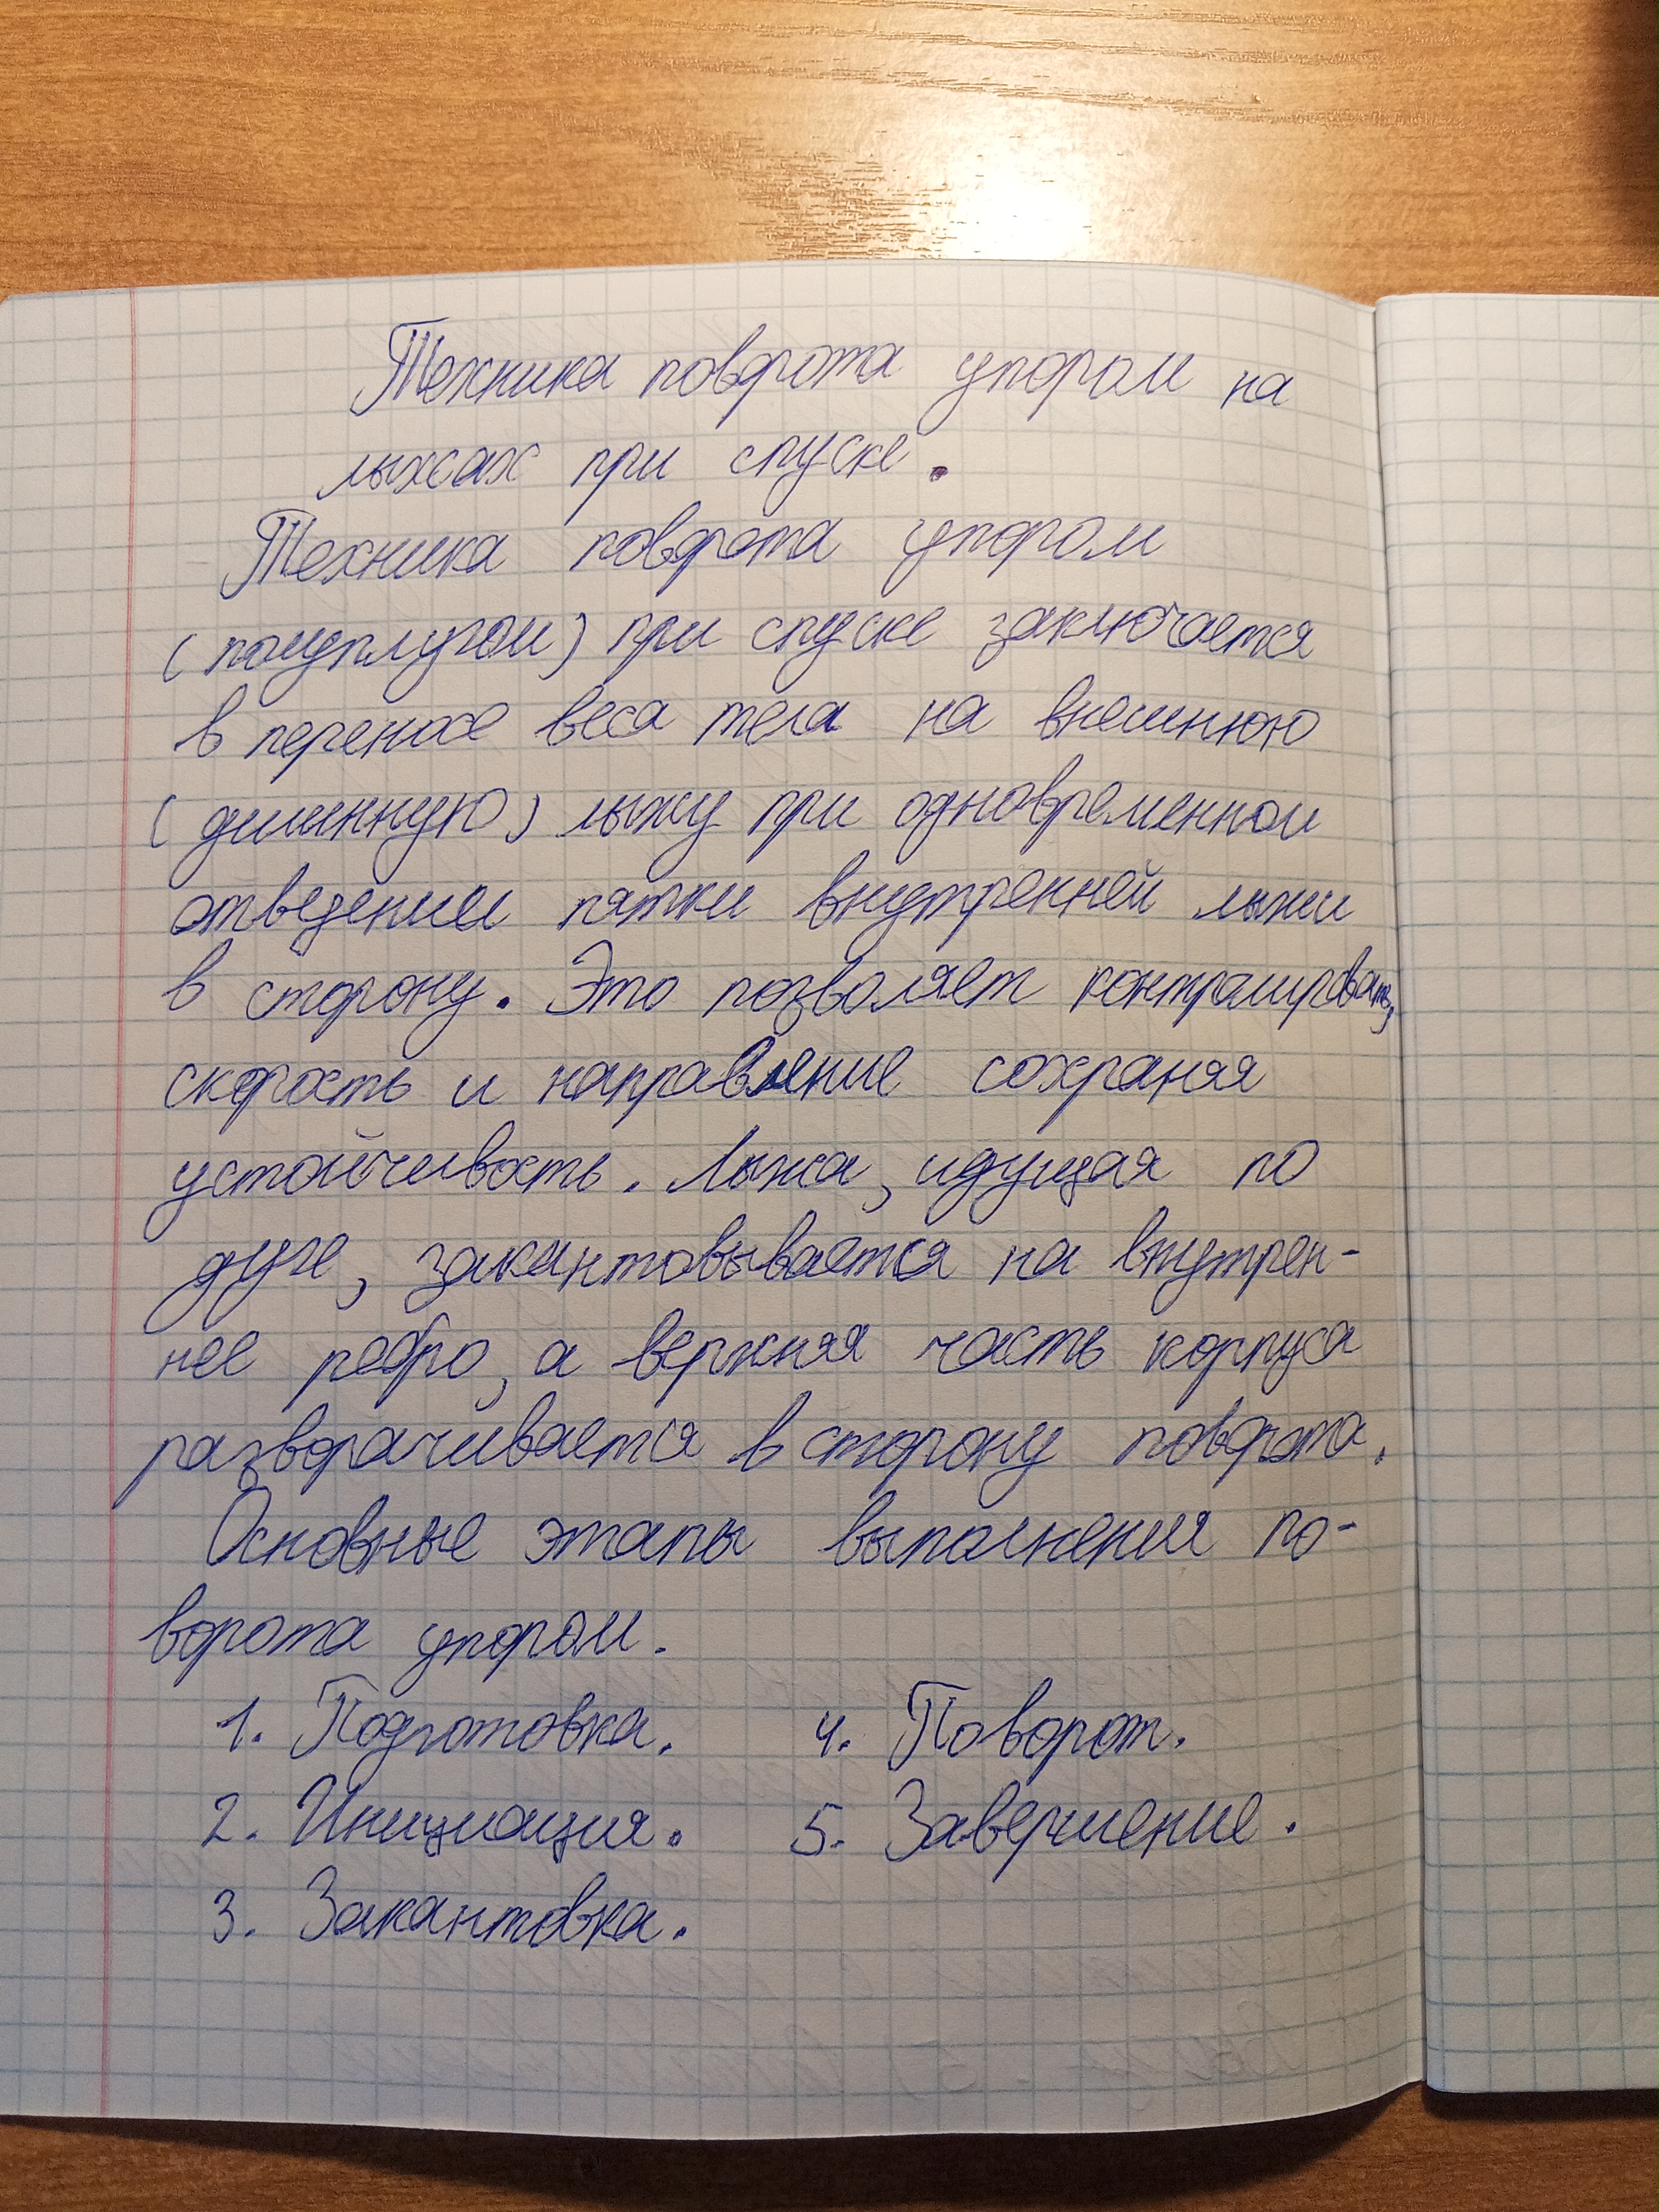 Техника поворота упором на
лыжах при спуске.
Техника поворота упором
(полуплугом) при спуске заключается
в переносе веса тела на внешнюю
(длинную) лыжу при одновременном
отведении пятки внутренней лыжи
в сторону. Это позволяет контролировать,
скорость и направление сохраняя
устойчивость. Лыжа, идущая по
дуге, закантовывается на внутрен-
нее ребро, а верхняя часть корпуса
разворачивается в сторону поворота.
Основные этапы выполнения по-
ворота упором.
1. Подготовка. 4. Поворот.
2. Инициация. 5. Завершение.
3. Закантовка.